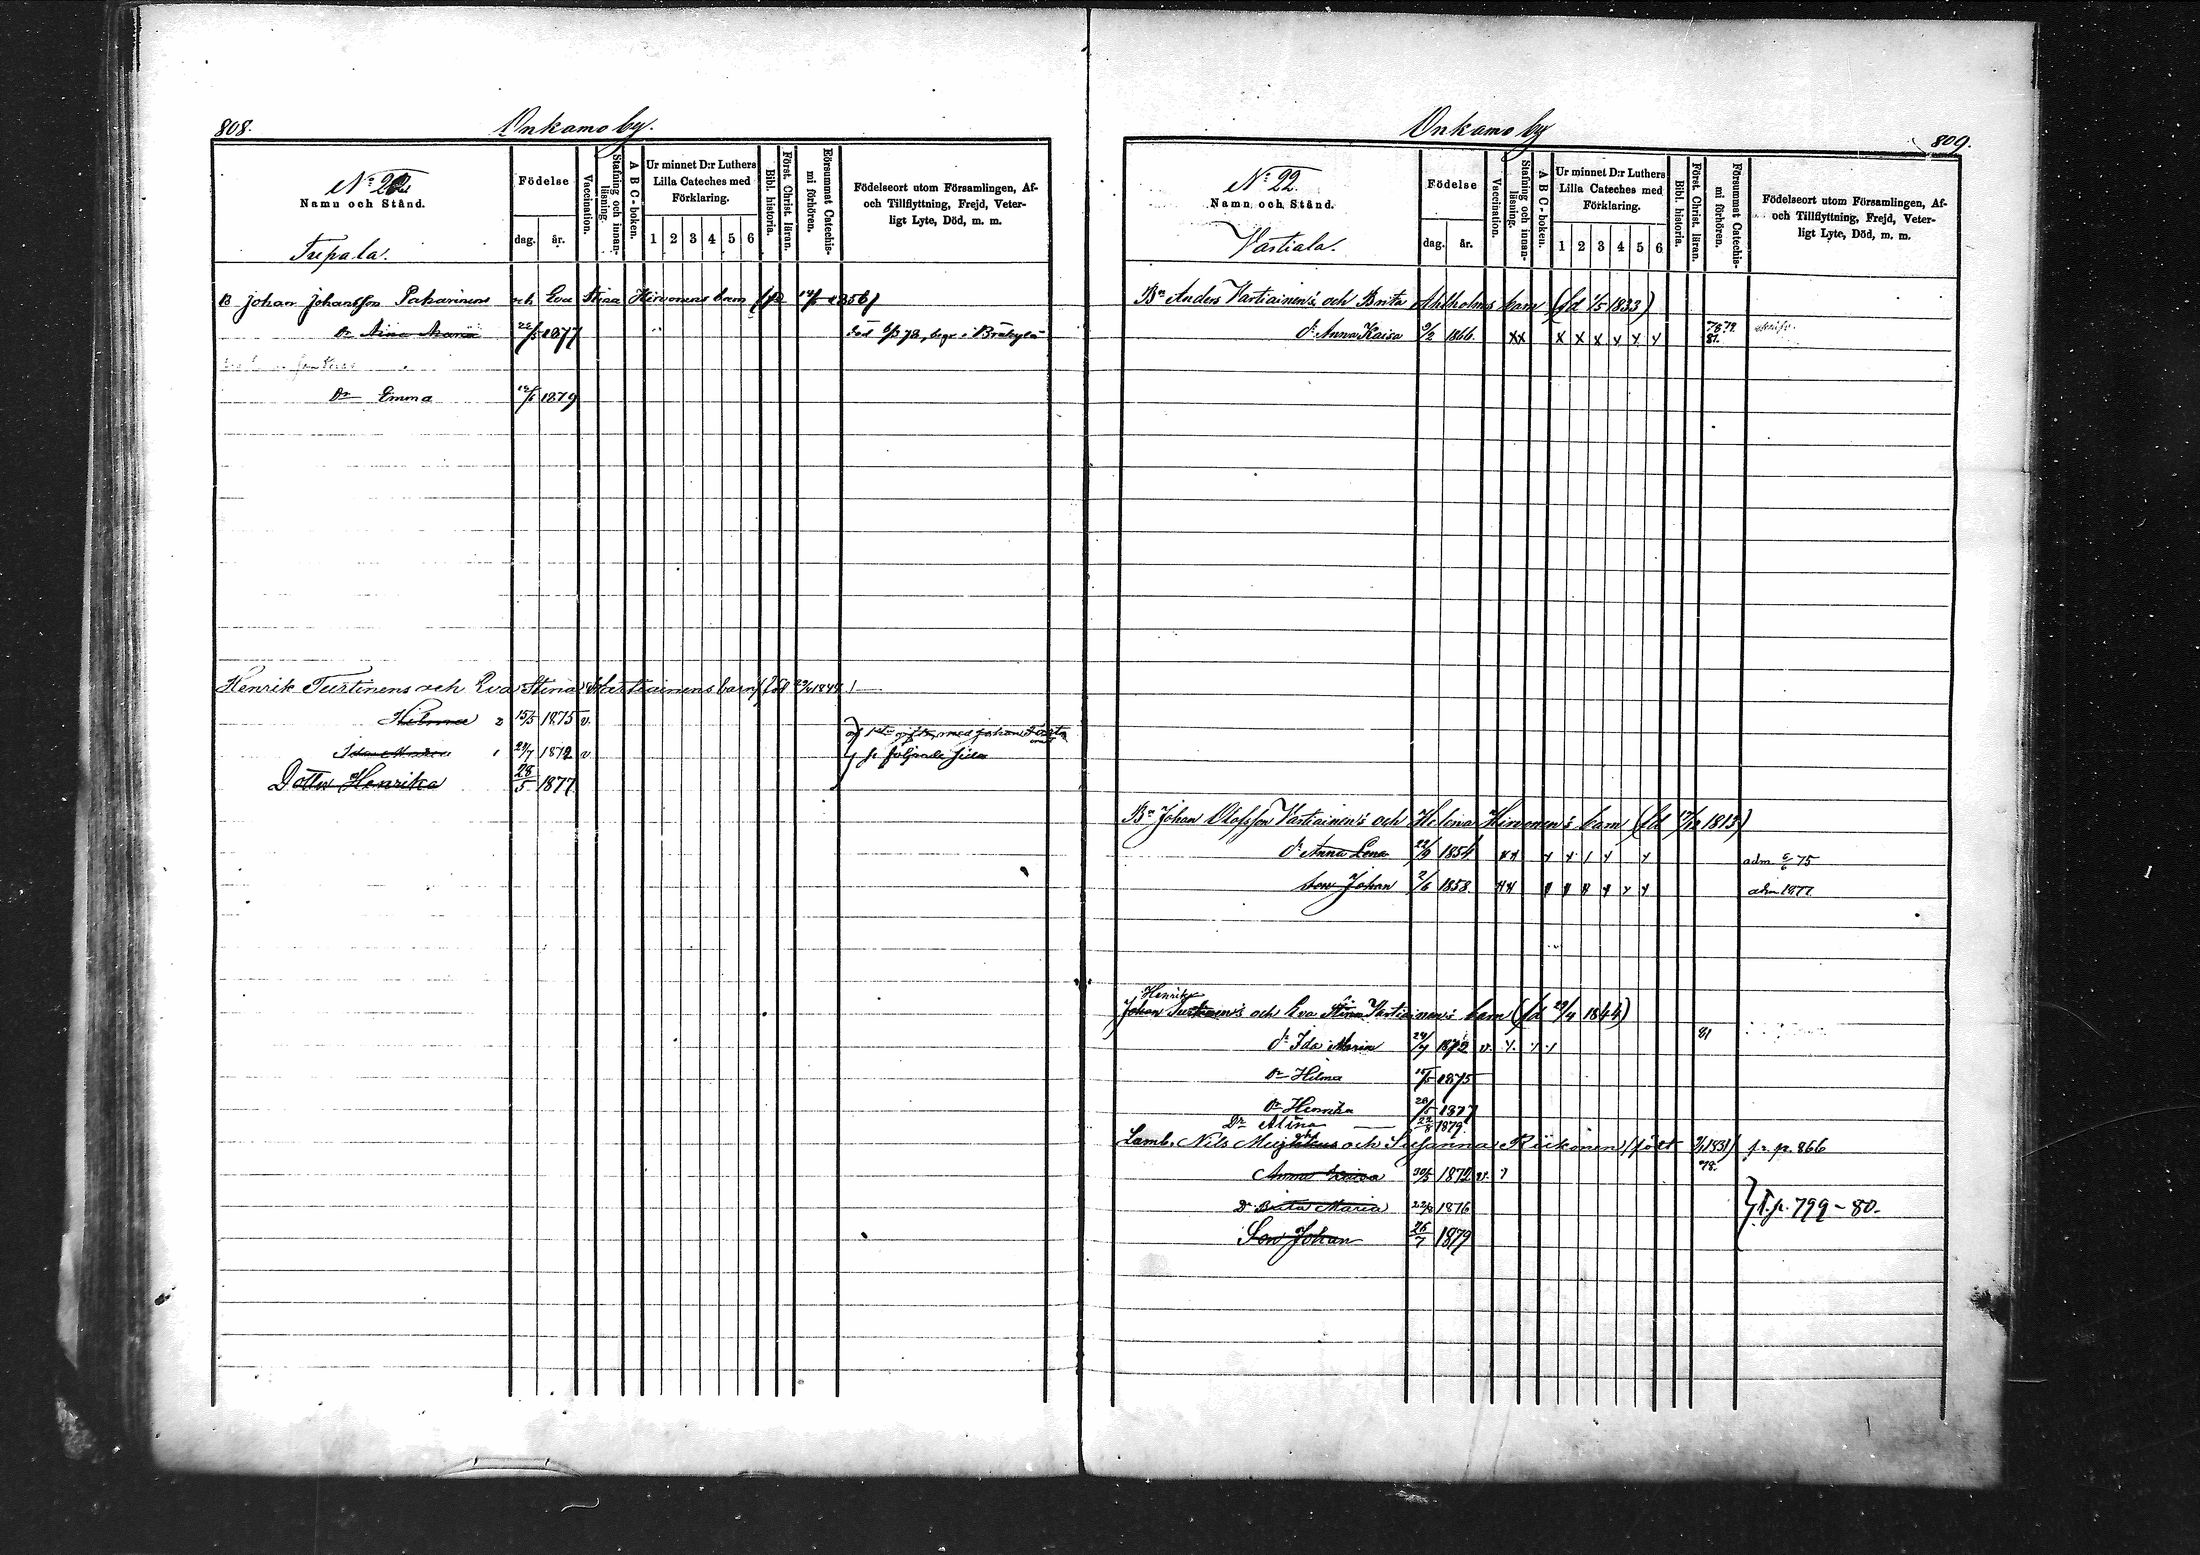 808.
Onkamo by.
No 22
Namn och Stånd.
Tupala.
Födelse
dag. år.
Vaccination.
Stafning och innanläsning.
A B C-boken.
Ur minnet D:r Luthers Lilla Cateches med Förklaring.
1 2 3 4 5 6
Bibl. historia.
Först. Christ. läran.
Försummat Catechismi förhören.
Födelseort utom Församlingen, Af- och Tillflyttning, Frejd, Veterligt Lyte, Död, m. m.
B Johan Johansson Pakarinens och Eva Stina Hirvonens barn
Dr Aina Maria 1877
Dr Emma 1879
Henrik Turtinens och Eva Stina Vartiainens barn
Hilma 2 15/5 1875 v.
Ida Maria 1 24/7 1872 v
fr följande sida
Dotter Henrika 28/5 1877
Onkamo by
809.
No 22.
Namn och Stånd.
Vartiala.
Födelse
dag. år.
Vaccination.
Stafning och innanläsning.
A B C-boken.
Ur minnet D:r Luthers Lilla Cateches med Förklaring.
1 2 3 4 5 6
Bibl. historia.
Först. Christ. läran.
Försummat Catechismi förhören.
Födelseort utom Församlingen, Af- och Tillflyttning, Frejd, Veterligt Lyte, Död, m. m.
Bn Anders Vartiainen's och Brita Ahlholms barn (fd 1/5 1833)
dr Anna Kaisa 9/2 1866. xx x x x x x x 81.
Bn Johan Olofsson Vartiainen's och Helena Hirvonen's barn
dr Anna Lena 22/9 1854 adm. 75
son Johan 2/6 1858 adm 1877
Henrik
Johan Turtinen's och Eva Stina Vartiainen's barn (fd 29/4 1844)
dr Ida Maria 24/7 1872 v. 81
Dr Hilma 15/5 1875
Dr Henrika 28/5 1877
Dr Alina 22/8 1879.
Lamb. Nils och Susanna Riikonen född 1831) fr. p. 866
Anna 30/5 1872 v. 78.
Dr Brita Maria 1876
T. p. 799-80.
Son Johan 26/7 1879